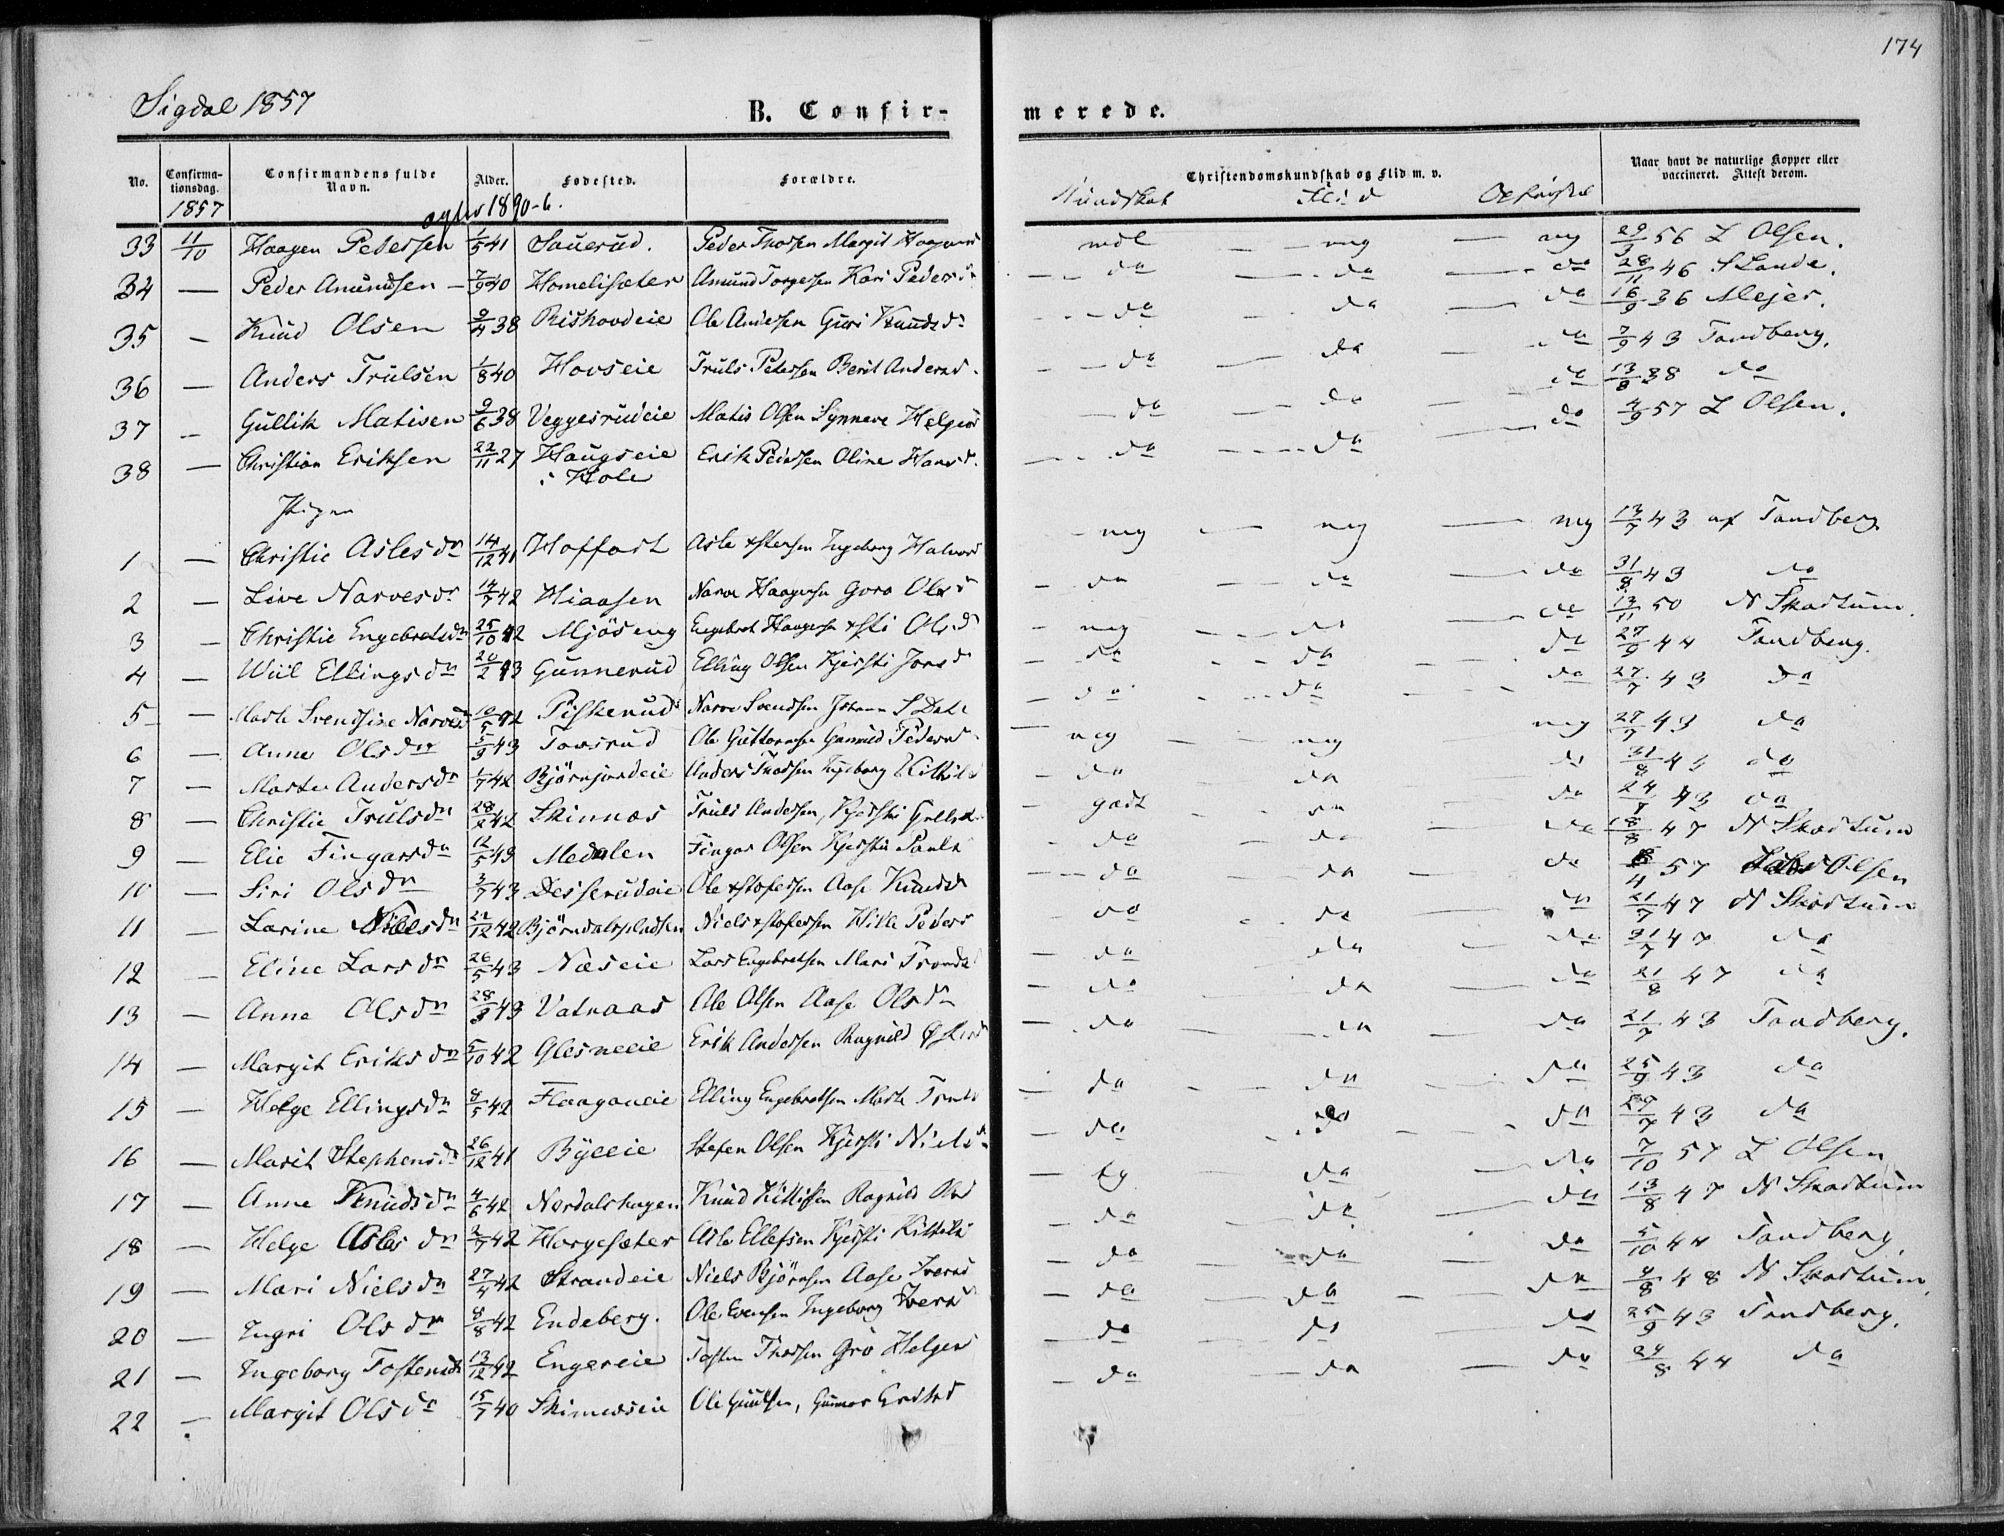 174
Sigdal 1857
B. Confir-merede.
No. Confirmationsdag. Confirmandens fulde Navn. Alder. Fødested. Forældre. Christendomskundskab og Flid m. v. Naar havt de naturlige Kopper eller vaccineret. Attest derom.
1857 Kundskab Flid Opførsel
33 11/10 Haagen Petersen 1/5 41 Sauerud. Peder Thorsen Margit mdl — mg — mg 29/3 56 L Olsen.
34 — Peder Amundsen — 7/9 40 Homelisæter Amund Torgersen Kari Pedersdr — do — do — do 28/11 46 S Lande.
35 — Knud Olsen 9/4 38 Rishovdeie Ole Andersen Guri Knudsdr — do — do — do 16/9 36 Mejer.
36 — Anders Trulsen 1/8 40 Hovseie Truls Petersen Berit Andersd. — do — do — do 7/9 43 Tandberg.
37 — Gullik Matisen 9/6 38 Veggesrudeie Matis Olsen Synneve Helgesd — do — do — do 13/8 38 do
38 — Christian Eriksen 22/11 27 Haugseie Erik Pedersen Oline Hansd. — do — do — do 4/9 57 L Olsen.
i Hole
Piger
1 — Christie Aslesdr 14/12 41 Hoffart Asle Ingeborg Halvors — mg — mg — mg 13/7 43 af Tandberg
2 — Live Narvesdr 14/7 42 Hiaasen Narve Haagensen Goro Olsd — do — do — do 31/8 43 do
3 — Christie Engebretsdr 25/10 42 Mjøseng Engebret Haagensen Olsd — mg — do — do 13/11 50 N Skartum.
4 — Wiil Ellingsdr 20/2 43 Gunnerud Elling Olsen Kjersti Jonsd — do — do — do 27/9 44 Tandberg.
5 — Marte Svendsine Narvesd 10/5 42 Piskerud Narve Svendsen — do — do — do 27/7 43 do
6 — Anne Olsdr 5/3 43 Tovsrud Ole Guttormsen Gunnild Pedersd. — mg — mg mg 27/7 43 do
7 — Marte Andersdr 1/7 42 Anders Thorsen Ingeborg Kittils — do do do 31/8 43 do
8 — Christie Trulsdr 28/2 42 Skinnes Truls Andersen, Kjersti — godt — do do 24/8 43 do
9 — Elie Fingarsdr 12/5 43 Medalen Fingar Olsen Kjersti Pauls — do — do do 18/8 47 N Skartum
10 — Siri Olsdr 3/7 43 Desserudeie Ole Aase Knudsd — do — do do 57 Olsen
11 — Larine Nilsdr 22/12 42 Bjørndalspladsen Niels Peders do do 21/7 47 N Skartum
12 — Eline Larsdr 26/5 43 Næseie Lars Engebretsen Mari Tronds — do — do — do 31/7 47 do
13 — Anne Olsdr 28/3 43 Vatnaas Ole Olsen Aase Olsdr — do — do — do 21/8 47 do
14 — Margit Eriksdr 5/10 42 Glesneeie Erik Andersen Ragnild — do do — do 21/7 43 Tandberg.
15 — Helge Ellingsdr 8/5 42 Haaganeie Elling Engebretsen Marte — do — do — do 25/9 43 do
16 — Marit Stephensdr 26/12 41 Byeeie Stefen Olsen Kjersti Nielsdr — do — do — do 27/7 43 do
17 — Anne Knudsdr 4/6 42 Nordalshagen Knud Kittilsen Ragnild Olsd — tg — do — do 7/10 57 L Olsen
18 — Helge Aslesdr 2/7 42 Horgesæter Asle Ellefsen Kjersti Kittels — do — do — do 13/8 47 N Skartum
19 — Mari Nielsdr 27/4 42 Strandeie Niels Bjørnsen Aase Iversd — do — do do 5/10 44 Tandberg
20 — Ingri Olsdr 8/8 42 Endeberg. Ole Evensen Ingeborg Iversd — do — do — do 4/8 48 N Skartum
21 — Ingeborg Tostensdr 13/12 42 Engereie Tosten Thorsen Gro Helges — do — do — do 25/9 43 Tandberg.
22 — Margit Olsdr 15/7 40 Skinneseie Ole, Gunnor — do — do — do 24/8 44 do